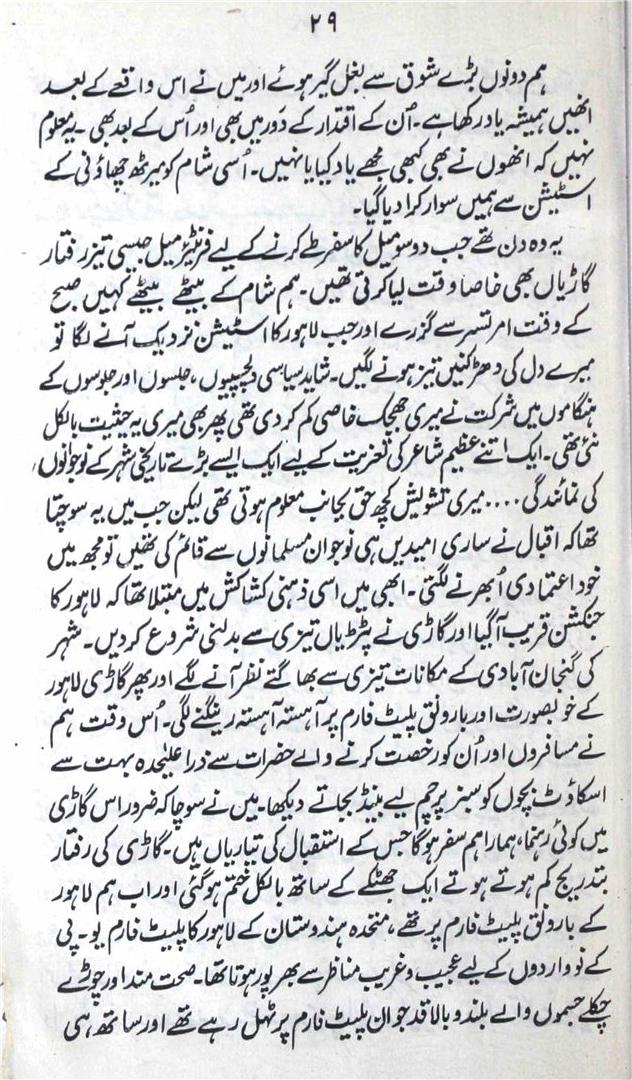 ۲۹
ہم دونوں بڑے شوق سے بغل گیر ہوئے اور میں نے اس واقعے کے بعد
انھیں ہمیشہ یاد رکھا ہے۔ اُن کے اقتدار کے دَور میں بھی اور اُس کے بعد بھی۔ یہ معلوم
نہیں کہ انھوں نے بھی کبھی مجھے یاد کیا یا نہیں۔ اُسی شام کو میرٹھ چھاؤنی کے
اسٹیشن سے ہمیں سوار کرا دیا گیا۔
یہ وہ دن تھے جب دو سو میل کا سفر طے کرنے کے لیے فرنٹیئر میل جیسی تیز رفتار
گاڑیاں بھی خاصا وقت لیا کرتی تھیں۔ ہم شام کے بیٹھے بیٹھے کہیں صبح
کے وقت امرتسر سے گزرے اور جب لاہور کا اسٹیشن نزدیک آنے لگا تو
میرے دل کی دھڑکنیں تیز ہونے لگیں۔ شاید سیاسی دلچسپیوں، جلسوں اور جلوسوں کے
ہنگاموں میں شرکت نے میری جھجک خاصی کم کر دی تھی پھر بھی میری یہ حیثیت بالکل
نئی تھی۔ ایک اتنے عظیم شاعر کی تعزیت کے لیے ایک ایسے بڑے تاریخی شہر کے نوجوانوں
کی نمائندگی .... میری تشویش کچھ حق بجانب معلوم ہوتی تھی لیکن جب میں یہ سوچتا
تھا کہ اقبال نے ساری امیدیں ہی نوجوان مسلمانوں سے قائم کی تھیں تو مجھ میں
خود اعتمادی اُبھرنے لگتی۔ ابھی میں اسی ذہنی کشاکش میں مبتلا تھا کہ لاہور کا
جنکشن قریب آگیا اور گاڑی نے پٹڑیاں تیزی سے بدلنی شروع کر دیں۔ شہر
کی گنجان آبادی کے مکانات تیزی سے بھاگتے نظر آنے لگے اور پھر گاڑی لاہور
کے خوبصورت اور بارونق پلیٹ فارم پر آہستہ آہستہ رینگنے لگی۔ اُس وقت ہم
نے مسافروں اور اُن کو رخصت کرنے والے حضرات سے ذرا علیٰحدہ بہت سے
اسکاؤٹ بچوں کو سبز پرچم لیے بینڈ بجاتے دیکھا۔ میں نے سوچا کہ ضرور اس گاڑی
میں کوئی رہنما، ہمارا ہم سفر ہوگا جس کے استقبال کی تیاریاں ہیں۔ گاڑی کی رفتار
بتدریج کم ہوتے ہوتے ایک جھٹکے کے ساتھ بالکل ختم ہوگئی اور اب ہم لاہور
کے بارونق پلیٹ فارم پر تھے، متحدہ ہندوستان کے لاہور کا پلیٹ فارم یو۔ پی
کے نوواردوں کے لیے عجیب و غریب مناظر سے بھرپور ہوتا تھا۔ صحت مند اور چوڑے
چکلے جسموں والے بلند و بالا قد جوان پلیٹ فارم پر ٹہل رہے تھے اور ساتھ ہی